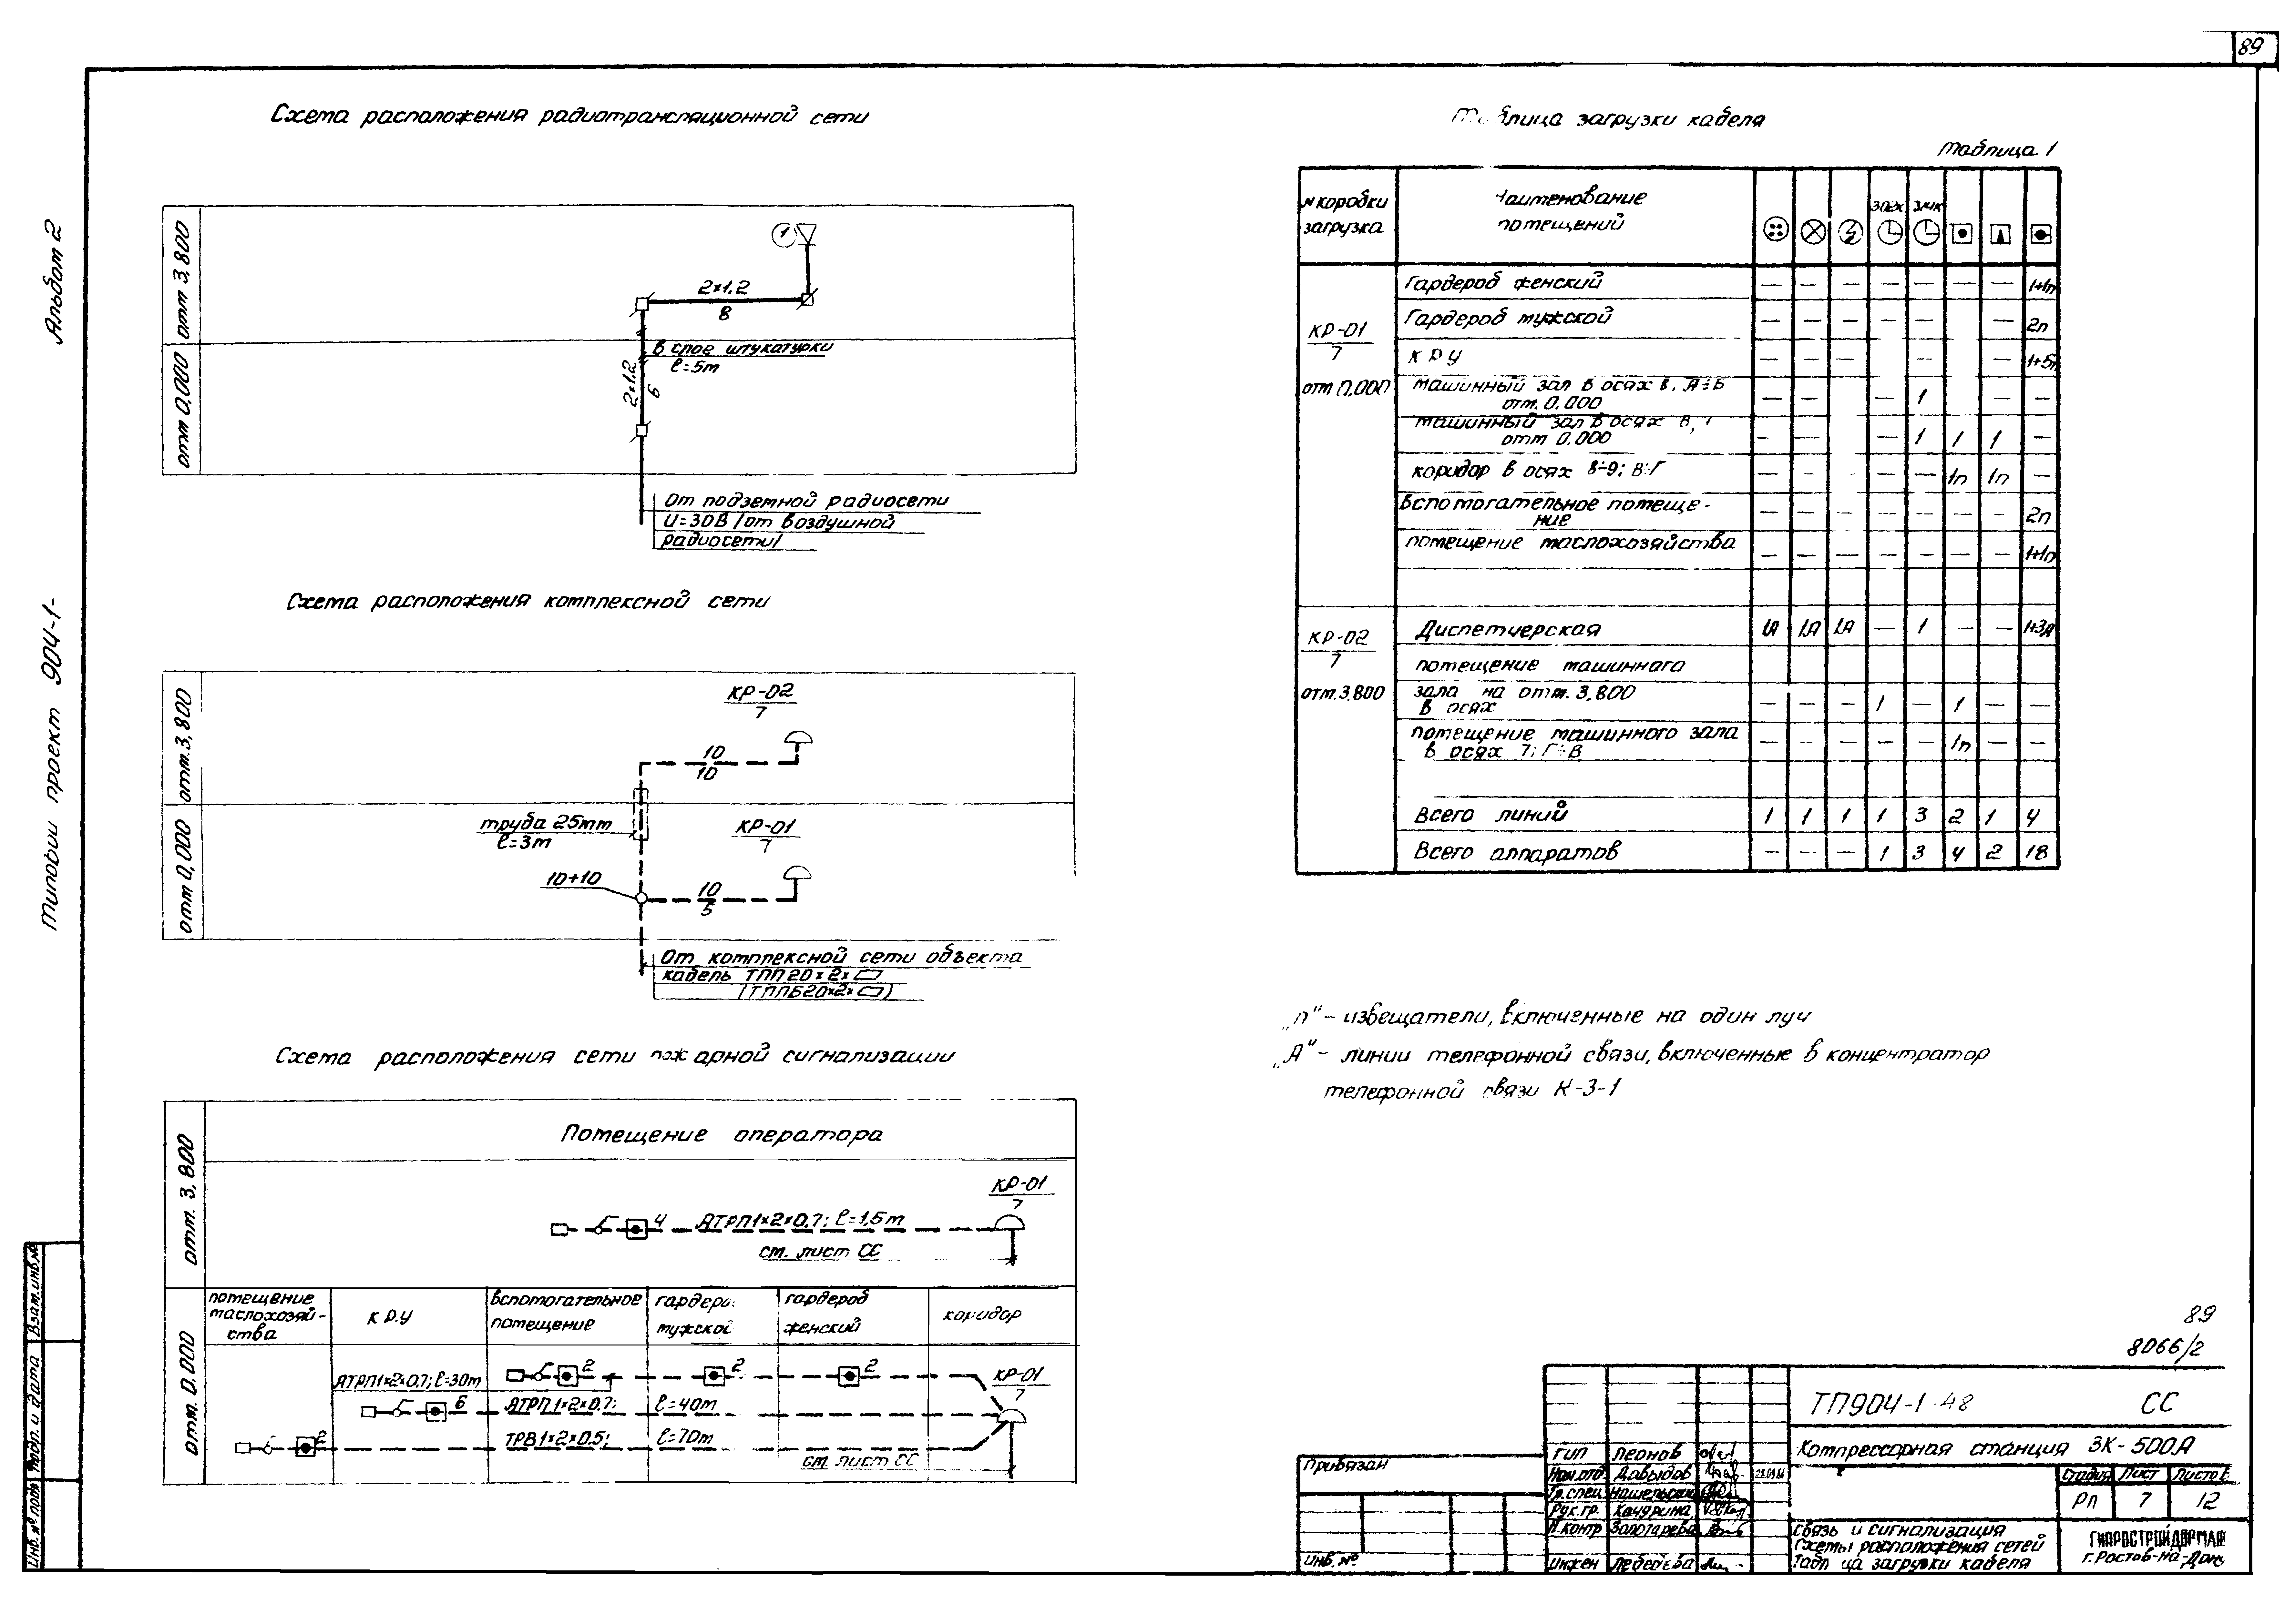 89
Альбом 2
Типовой проект 904-1-
Схема расположения радиотрансляционной сети
отм 3,800
отм 0,000
1
2×1,2
8
в слое штукатурки
ℓ=5м
2×1,2
6
От подземной радиосети
U=30В /от воздушной
радиосети/
Схема расположения комплексной сети
отм.3,800
отм 0,000
КР-02
7
10
10
труба 25мм
ℓ=3м
КР-01
7
10+10
10
5
От комплексной сети объекта
кабель ТПП20×2×
(ТППБ20×2× )
Схема расположения сети пожарной сигнализации
отм. 3,800
Помещение оператора
КР-01
7
4 АТРП1×2×0,7; ℓ=1,5м
см. лист СС
отм. 0.000
помещение маслохозяй-
ства
КРУ
вспомогательное
помещение
гардероб
мужской
гардероб
женский
коридор
АТРП1×2×0.7; ℓ=30м
2 2 2
КР-01
7
6 АТРП1×2×0.7; ℓ=40м
2 ТРВ1×2×0.5; ℓ=70м
см. лист СС
Таблица загрузки кабеля
таблица 1
N коробки
загрузка
Наименование
помещений
элек
КР-01
7
отм 0,000
Гардероб женский — — — — — — — 1+1п
Гардероб мужской — — — — — — 2п
КРУ — — — — — 1+5п
машинный зал в осях 8, А÷Б
отм. 0.000 — — — 1 — —
машинный зал в осях В,
отм 0.000 — — — 1 1 1 —
коридор в осях 8÷9; В÷Г — — — — — 1п 1п —
Вспомогательное помеще-
ние — — — — — — — 2п
помещение маслохозяйства — — — — — — — 1+1п
КР-02
7
отм.3,800
Диспетчерская 1А 1А 1А — 1 — — 1+3п
помещение машинного
зала на отм. 3,800
в осях — — — 1 — 1 — —
помещение машинного зала
в осях 7; Г÷В — — — — — 1п — —
Всего линий 1 1 1 1 3 2 1 4
Всего аппаратов — — — 1 3 4 2 18
„п" – извещатели, включенные на один луч
„А" – линии телефонной связи, включенные в концентратор
телефонной связи К-3-1
89
8066/2
ТП904-1-48 СС
Компрессорная станция 3К-500А
Стадия Лист Листов
РП 7 12
Связь и сигнализация
Схемы расположения сетей
Таблица загрузки кабеля
ГИПРОСТРОЙДОРМАШ
г. Ростов-на-Дону
ГИП Леонов
Нач.отд. Давыдов
Гл.спец.
Рук.гр. Качурина
Н.контр Золотарева
Инжен Лебедева
Привязан
Инв. №
Взам.инв.№
Подп. и дата
Инв.№ подл.